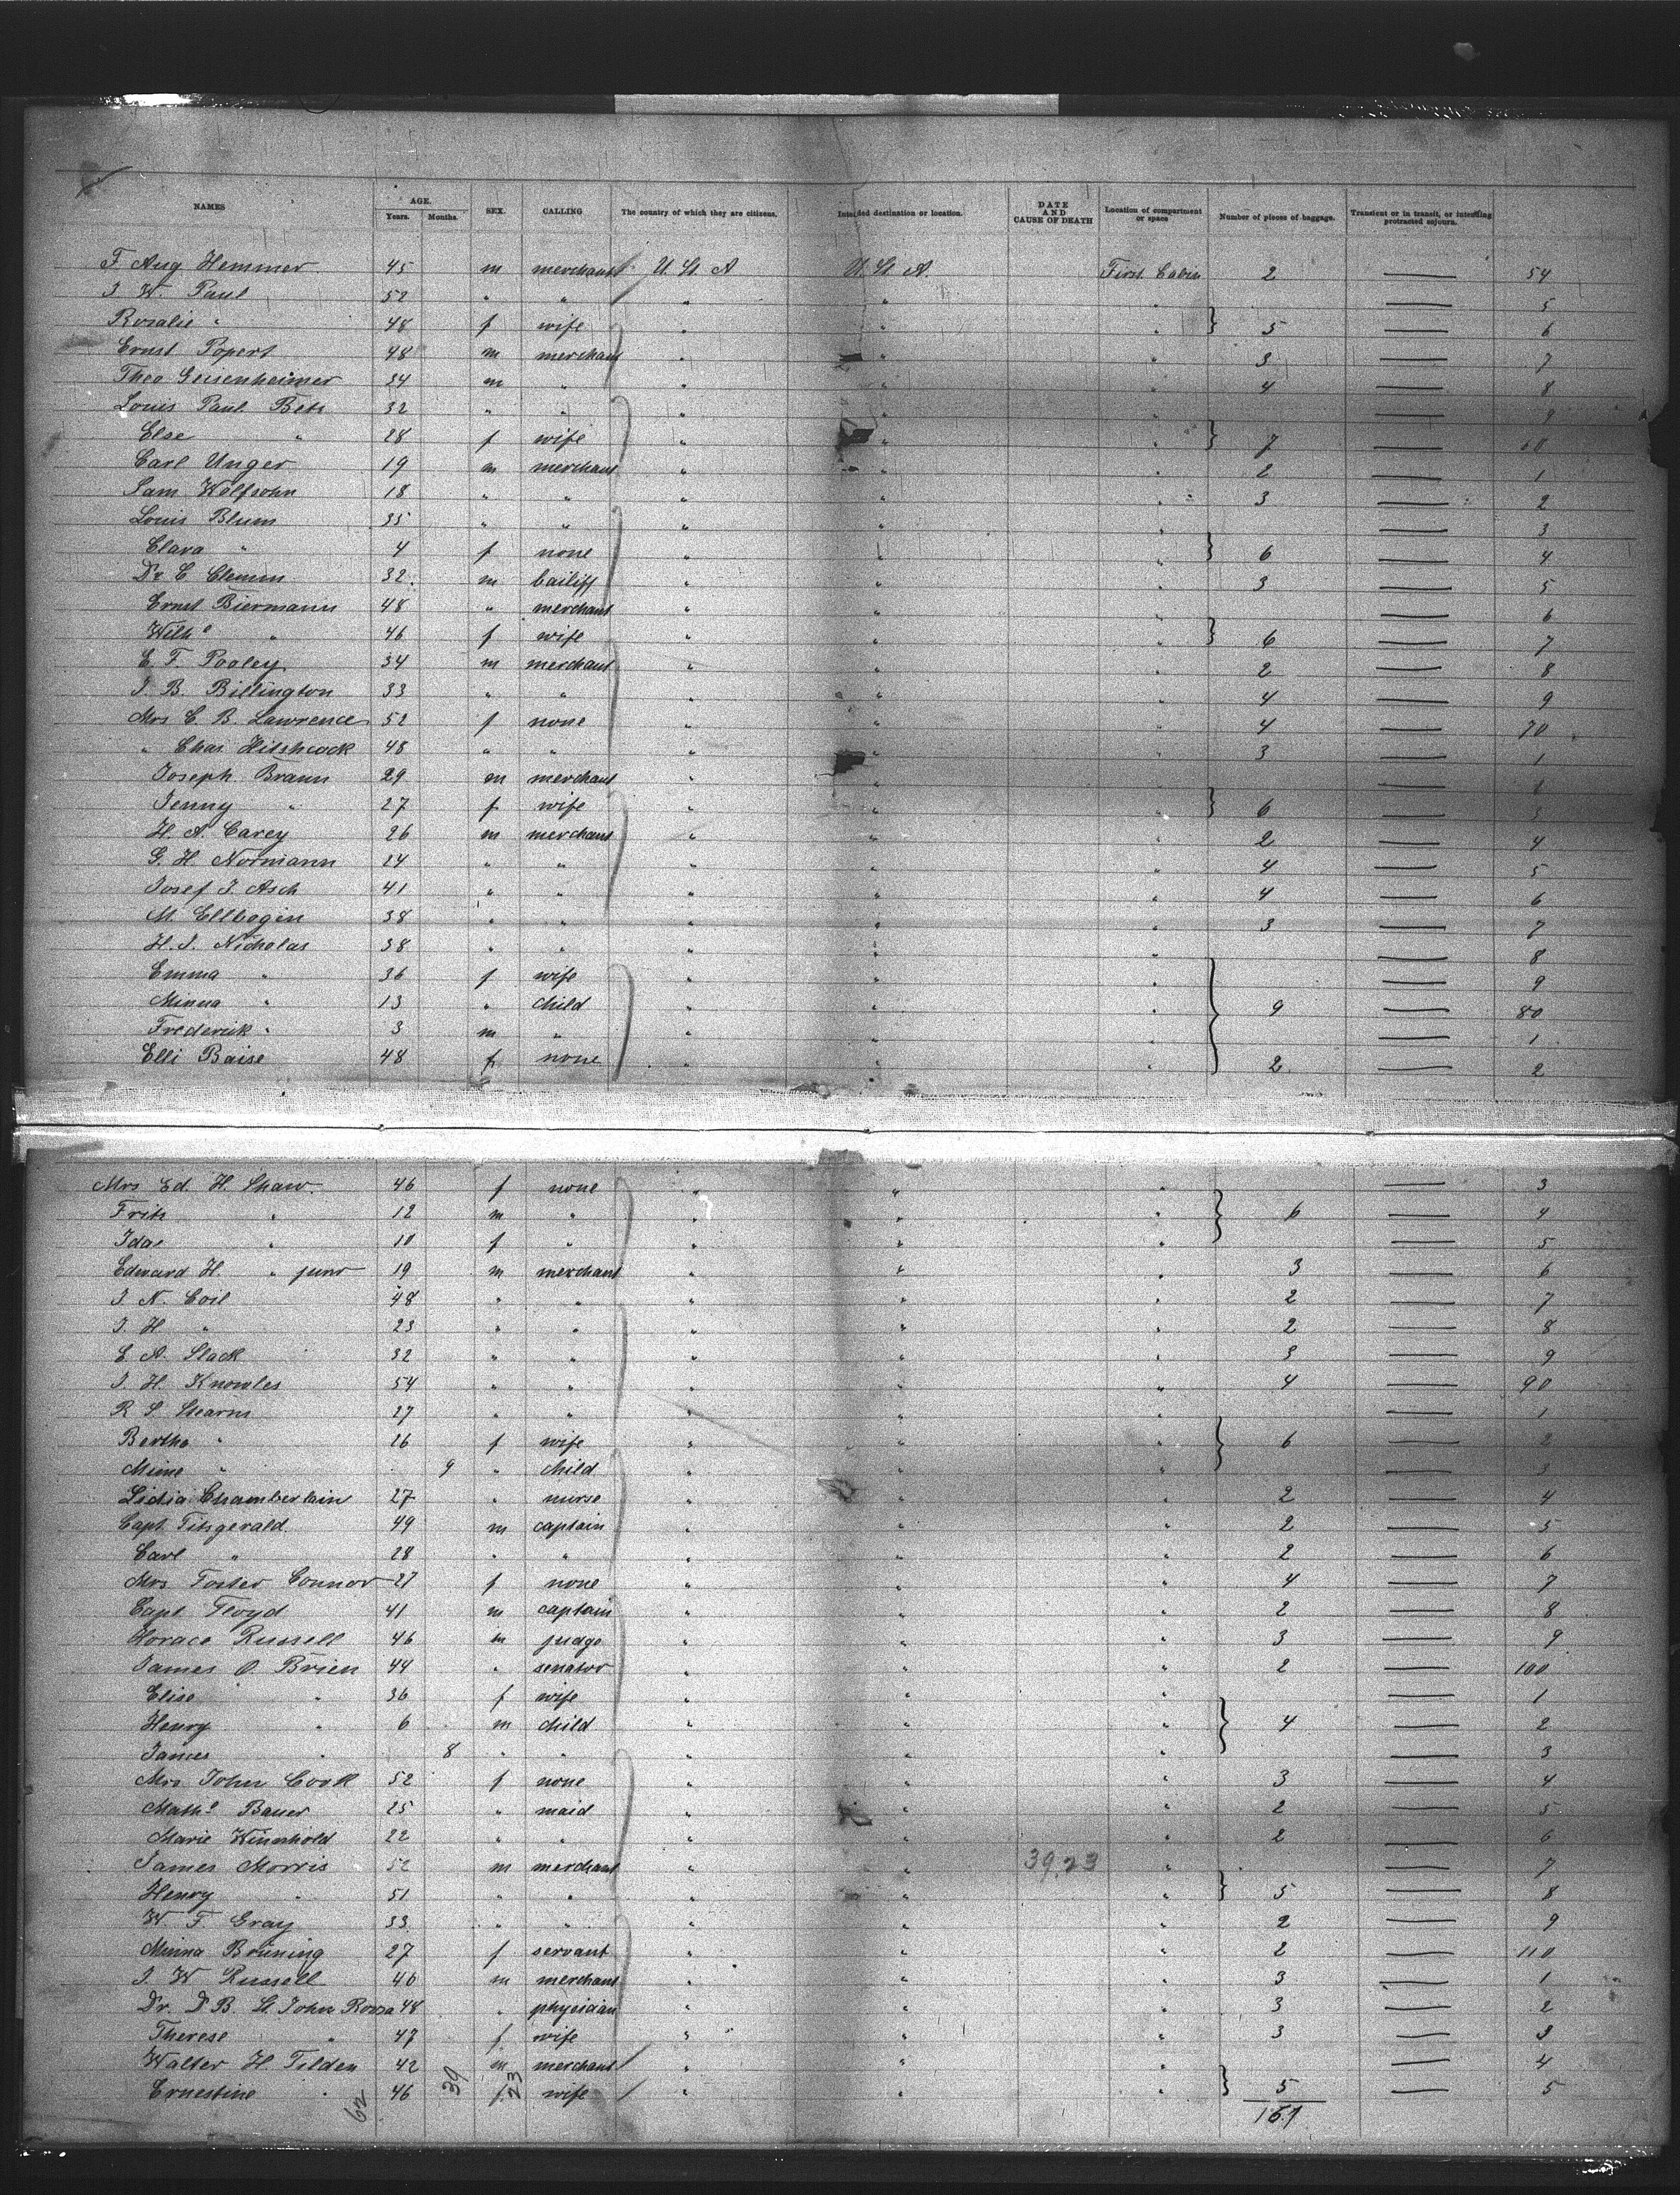 NAMES AGE. Years. Months. SEX. CALLING The country of which they are citizens. Intended destination or location. DATE AND CAUSE OF DEATH Location of compartment or space Number of pieces of baggage. Transient or in transit, or intending protracted sojourn.
F Aug Hemmer 45 m merchant U. St. A U. St. A. First Cabin 2 — 54
J. W. Paul 52 " " " " — 5
Rosalie " 48 f wife " " " } 5 — 6
Ernst Popert 48 m merchant " " " 3 — 7
Theo Geisenheimer 34 m " " " " 4 — 8
Louis Paul Betz 32 " " " " " — 9
Else " 28 f wife " " " } 7 — 60
Carl Unger 19 m merchant " " " 2 — 1
Sam Wolfsohn 18 " " " " " 3 — 2
Louis Blum 35 " " " " " — 3
Clara " 4 f none " " " } 6 — 4
Dr C Clemm 32 m bailiff " " " 3 — 5
Ernst Biermann 48 " merchant " " " — 6
Wilhe " 46 f wife " " " } 6 — 7
E. F. Pooley 34 m merchant " " " 2 — 8
J. B. Billington 33 " " " " " 4 — 9
Mrs C. B. Lawrence 52 f none " " " 4 — 70
" Chas Hitshcock 48 " " " " " 3 — 1
Joseph Braun 29 m merchant " " " —
Jenny " 27 f wife " " " } 6 —
H. A. Carey 26 m merchant " " " 2 — 4
G. H Normann 24 " " " " " 4 — 5
Josef J. Asch 41 " " " " " 4 — 6
M. Ellbogin 38 " " " " " 3 — 7
H. J. Nicholas 38 " " " " " — 8
Emma " 36 f wife " " " — 9
Minna " 13 " child " " " } 9 — 80
Frederik " 3 m " " " " — 1
Elli Baise 48 f none " " " 2 — 2
Mrs Ed. H. Shaw 46 f none " " " — 3
Fritz " 12 m " " " " } 6 — 4
Ida " 10 f " " " " — 5
Edward H. " junr 19 m merchant " " " 3 — 6
J. N. Coil 48 " " " " " 2 — 7
J. H " 23 " " " " " 2 — 8
E. A. Slack 32 " " " " " 3 — 9
J. H. Knowles 54 " " " " " 4 — 90
R S. Stearns 27 " " " " " — 1
Bertha " 26 f wife " " " } 6 — 2
Mime " 9 " child " " " — 3
Lidia Chamberlain 27 " nurse " " " 2 — 4
Capt. Fitzgerald 49 m captain " " " 2 — 5
Carl " 28 " " " " " 2 — 6
Mrs Foster Connor 27 f none " " " 4 — 7
Capt. Floyd 41 m captain " " " 2 — 8
Horace Russell 46 m judge " " " 3 — 9
James O. Brien 44 " senator " " " 2 — 100
Elise " 36 f wife " " " — 1
Henry " 6 m child " " " } 4 — 2
James " 8 " " " " " — 3
Mrs John Cook 52 f none " " " 3 — 4
Mathe Bauer 25 " maid " " " 2 — 5
Marie Winnhold 22 " " " " " 2 — 6
James Morris 52 m merchant " " 39,23 " — 7
Henry " 51 " " " " " } 5 — 8
W. F Gray 33 " " " " " 2 — 9
Minna Brüning 27 f servant " " " 2 — 110
J. W Russell 46 m merchant " " " 3 — 1
Dr. D B. St John Roosa 48 " physician " " " 3 — 2
Therese " 47 f wife " " " 3 — 3
Walter H. Tilden 42 m merchant " " " — 4
Ernestine " 46 f wife " " " } 5 — 5
62 39 23 167